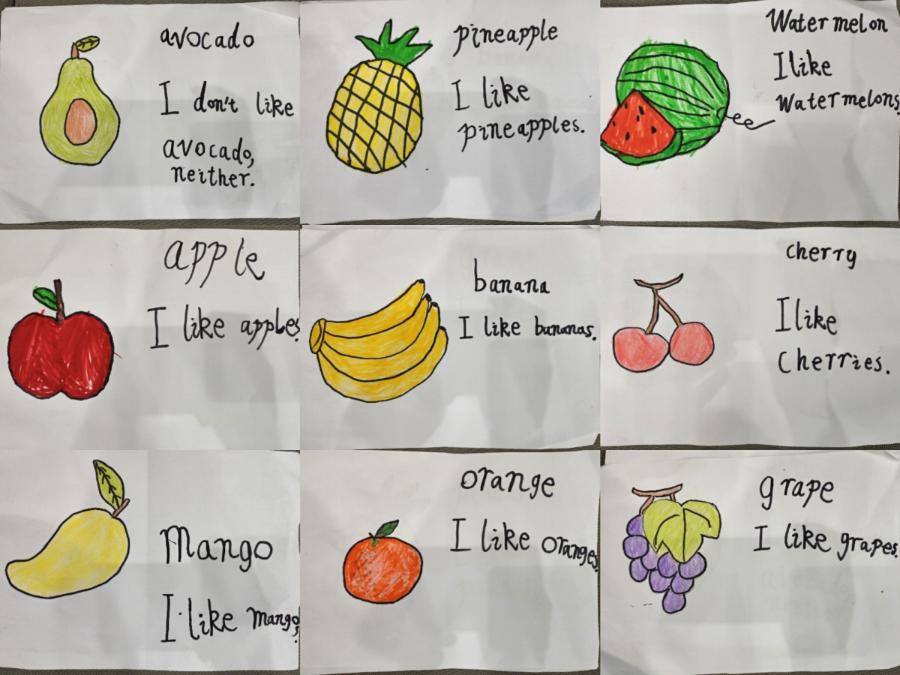 avocado
I don't like
avocado,
neither.
pineapple
I like
pineapples.
Water melon
I like
Watermelons
apple
I like apples
banana
I like bananas.
cherry
I like
Cherries.
Mango
I like mangos.
orange
I like oranges
grape
I like grapes.